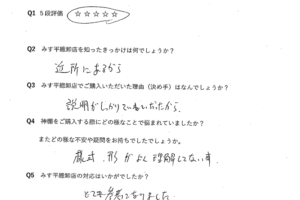 Q1 5段評価 ☆☆☆☆☆
Q2 みす平總卸店を知ったきっかけは何でしょうか？
近所にあるから
Q3 みす平總卸店でご購入いただいた理由（決め手）はなんでしょうか？
説明がしっかりしていたから
Q4 神徳をご購入する際にどの様なことで悩まれていましたか？
またどの様な不安や疑問をお持ちでしたでしょうか。
形がよく理解してない事
Q5 みす平總卸店の対応はいかがでしたか？
とても参考になりました